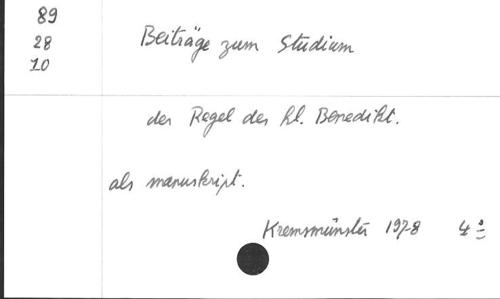 89
28
10
Beiträge zum Studium
der Regel des hl. Benedikt.
als manuskript.
Kremsmünster 1978 4°